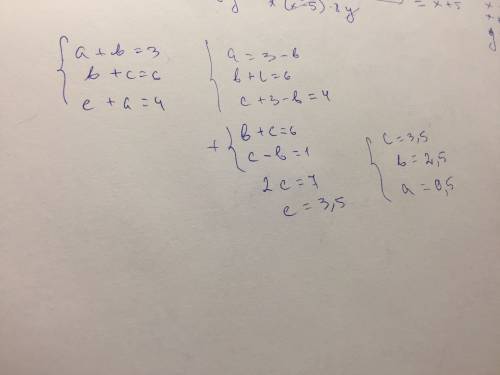 x(x-5)·xy = x+5
a+b=3
b+c=6
c+a=4
a=3-b
b+c=6
c+3-b=4
+ b+c=6
c-b=1
2c=7
c=3,5
c=3,5
b=2,5
a=0,5